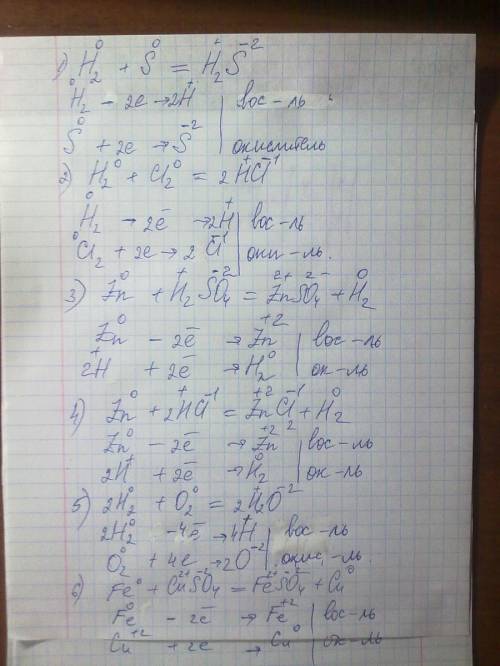 1) H₂⁰ + S⁰ = H₂⁺S⁻²
H₂⁰ – 2e → 2H⁺ | вос-ль
S⁰ + 2e → S⁻² | окислитель
2) H₂⁰ + Cl₂⁰ = 2H⁺Cl⁻¹
H₂⁰ – 2e̅ → 2H⁺ | вос-ль
Cl₂⁰ + 2e → 2Cl⁻¹ | оки-ль.
3) Zn⁰ + H₂⁺SO₄⁻² = Zn²⁺SO₄²⁻ + H₂⁰
Zn⁰ – 2e̅ → Zn⁺² | вос-ль
2H⁺ + 2e̅ → H₂⁰ | ок-ль
4) Zn⁰ + 2H⁺Cl⁻¹ = Zn⁺²Cl₂⁻¹ + H₂⁰
Zn⁰ – 2e̅ → Zn⁺² | вос-ль
2H⁺ + 2e̅ → H₂⁰ | ок-ль
5) 2H₂⁰ + O₂⁰ = 2H₂⁺O⁻²
2H₂⁰ – 4e̅ → 4H⁺ | вос-ль
O₂⁰ + 4e → 2O⁻² | окис-ль
6) Fe⁰ + Cu²⁺SO₄⁻² = Fe²⁺SO₄⁻² + Cu⁰
Fe⁰ – 2e̅ → Fe⁺² | вос-ль
Cu⁺² + 2e → Cu⁰ | ок-ль